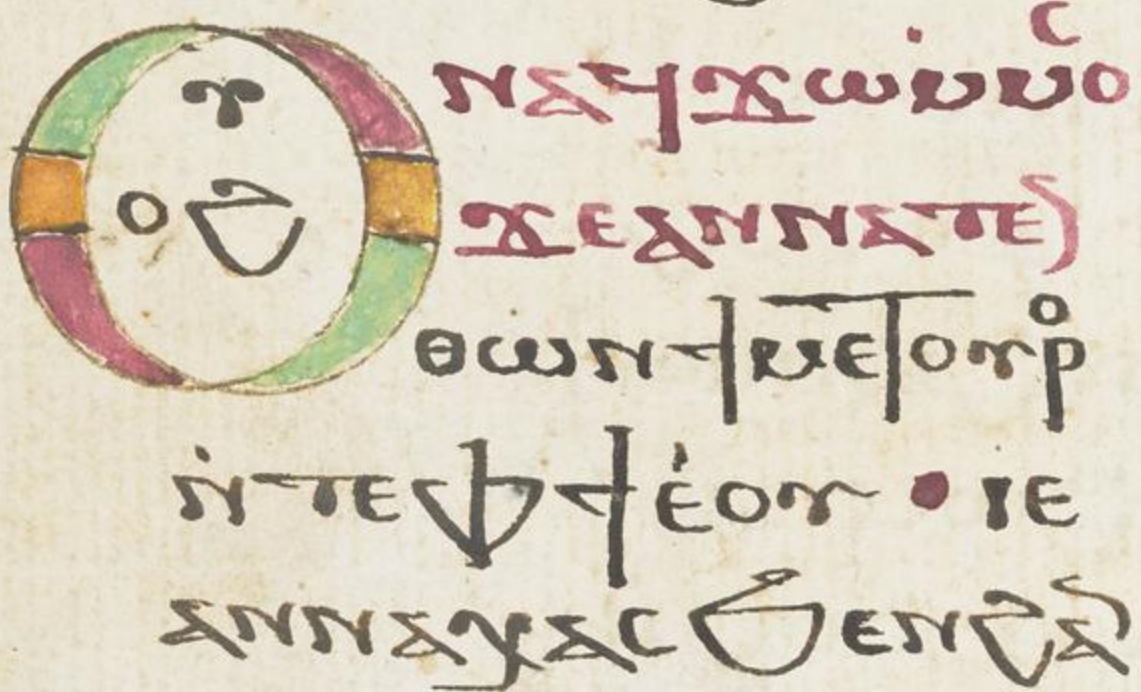 ⲟⲩⲟϩ ⲛⲁϥϫⲱⲙ̇ⲙⲟⲥ
ϫⲉⲁⲛⲛⲁⲧⲉ)
ⲑⲱⲛϯⲙⲉⲧⲟⲩⲣⲟ
ⲛ̇ⲧⲉⲫϯⲉ̇ⲟⲩ • ⲓⲉ
ⲁⲛⲛⲁⲭⲁⲥϧⲉⲛϩⲁ)